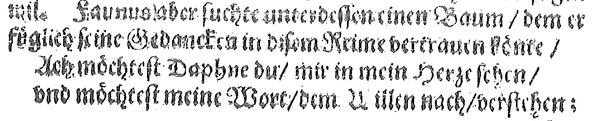 mil. Faunus aber suchte unterdessen einen Baum / dem er
füglich seine Gedancken in disem Reime vertrauen könte /
Ach möchtest Daphne du / mir in mein Herze sehen /
vnd möchtest meine Wort / dem Willen nach / verstehen: